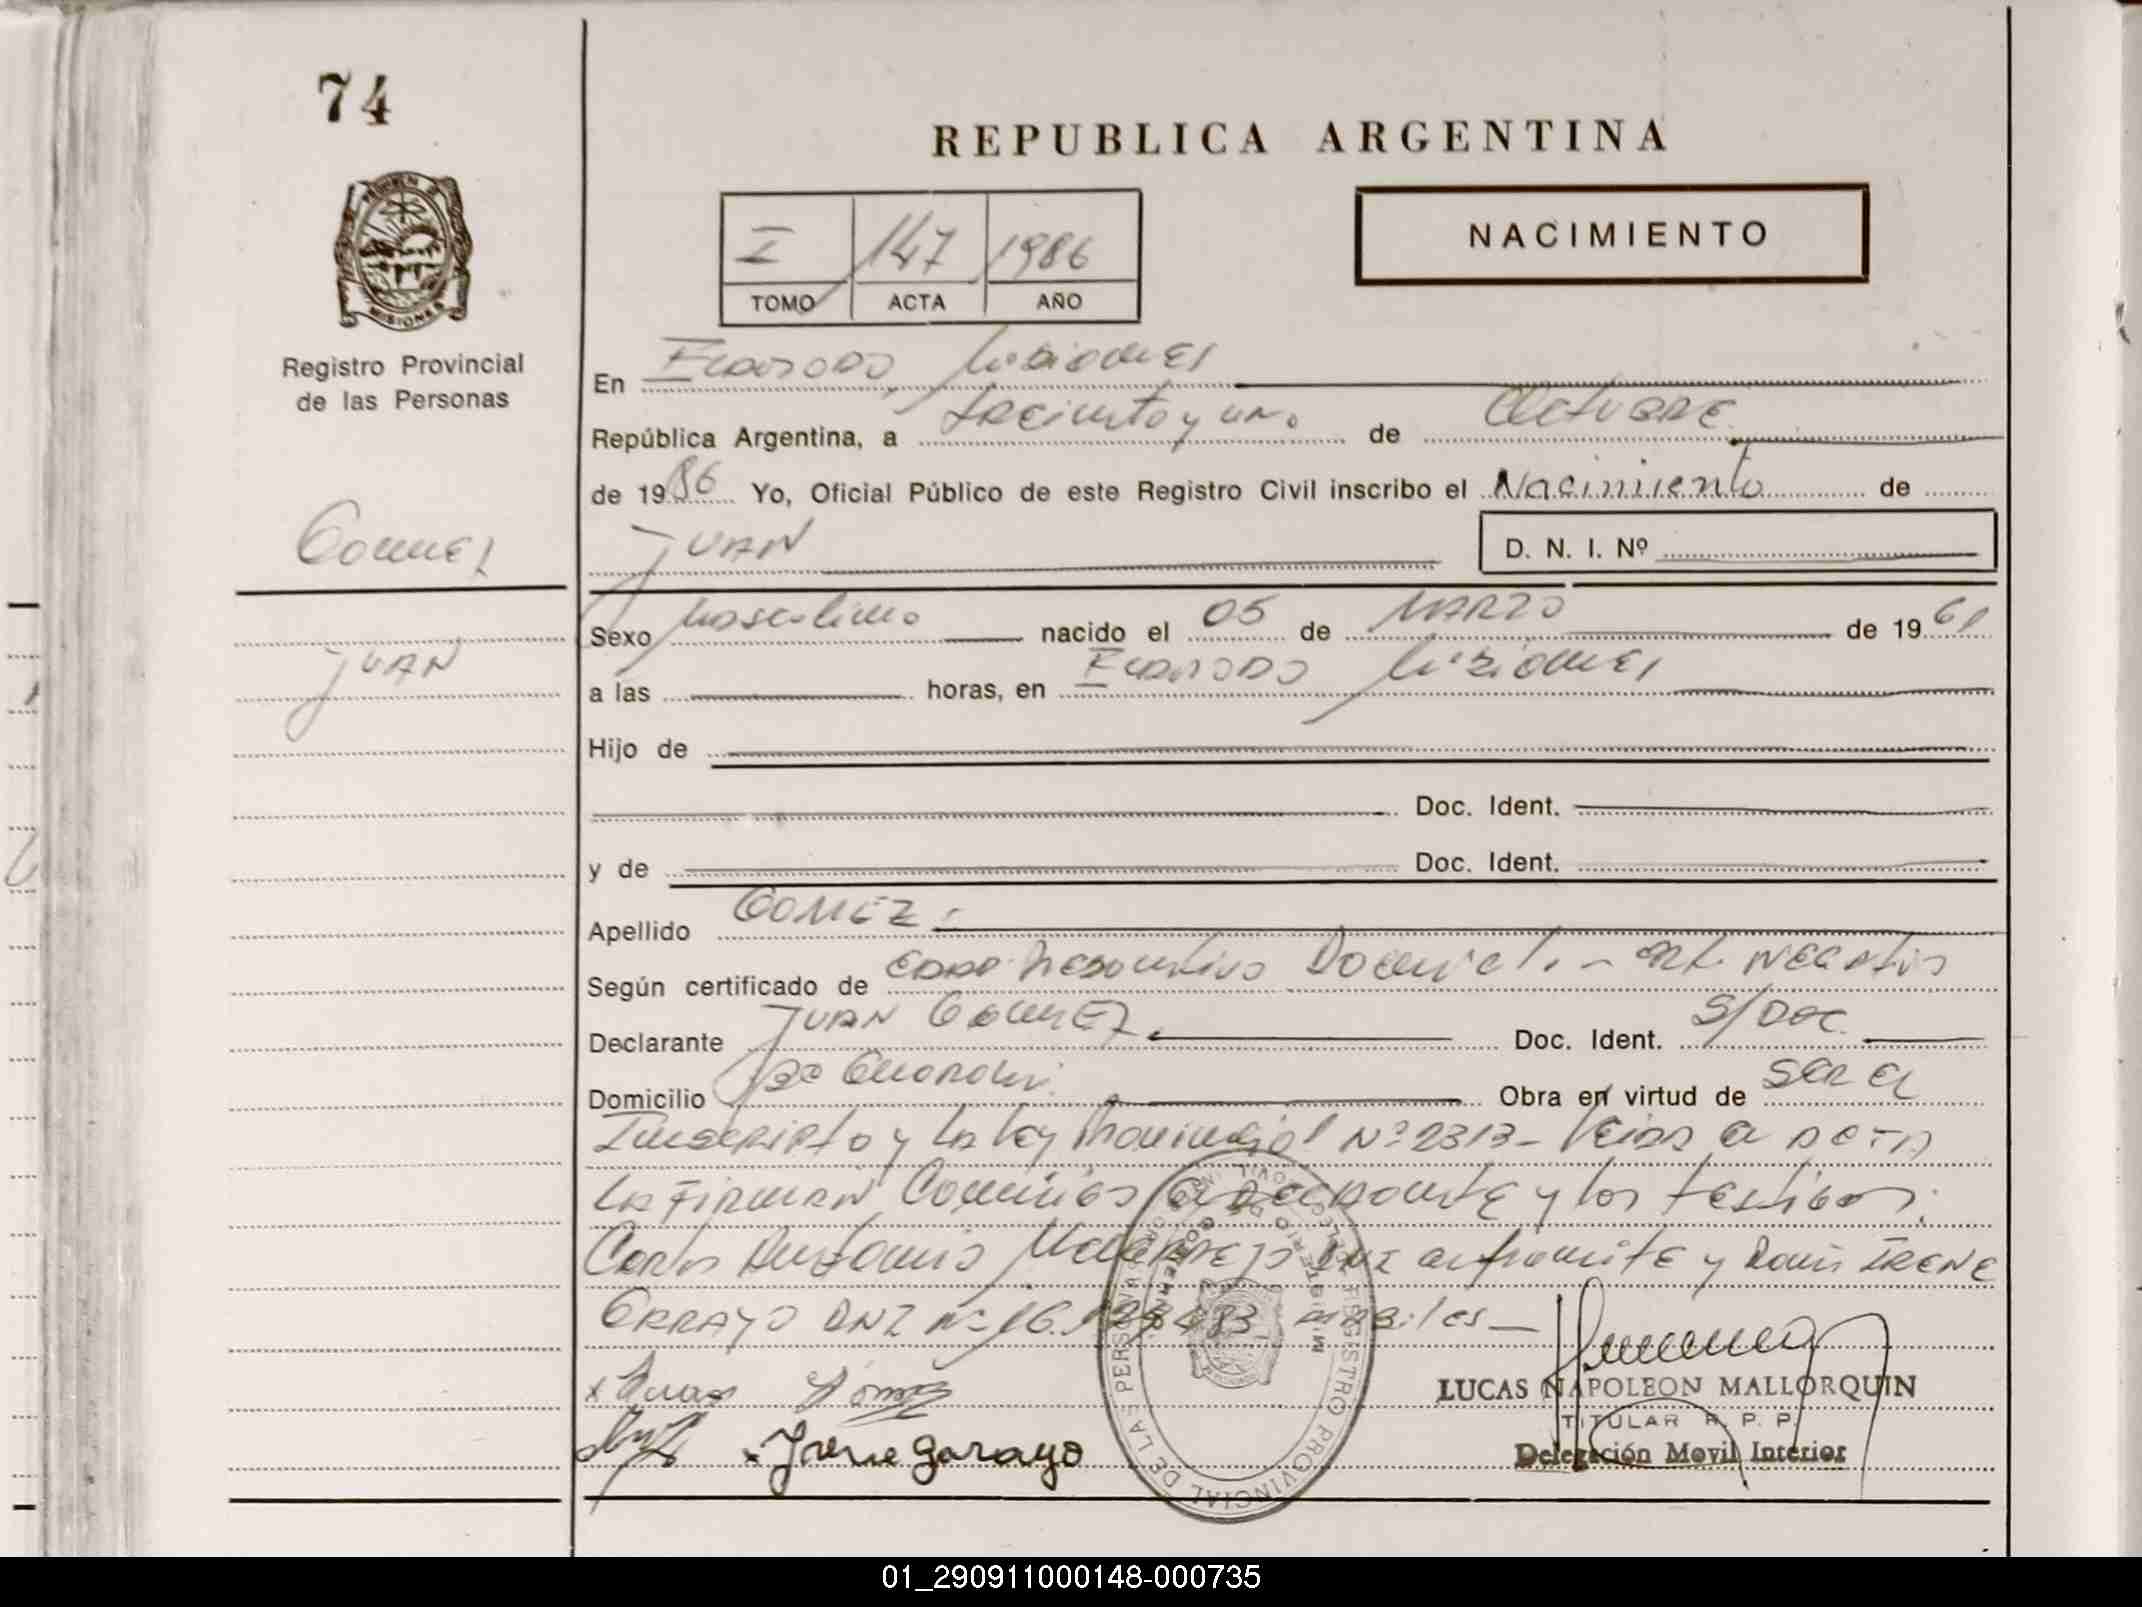 74
REPUBLICA ARGENTINA
NACIMIENTO
I 147 1986
TOMO ACTA AÑO
MISIONES
Registro Provincial
de las Personas
En Eldorado, Misiones
República Argentina, a treinta y uno de Octubre
de 1986 Yo, Oficial Público de este Registro Civil inscribo el Nacimiento de
Gomez
JUAN
D. N. I. Nº
Sexo Masculino nacido el 05 de MARZO de 1961
JUAN
a las horas, en Eldorado Misiones
Hijo de
Doc. Ident.
y de Doc. Ident.
Apellido GOMEZ.-
Según certificado de
Declarante JUAN GOMEZ. Doc. Ident. S/Doc.
Domicilio Obra en virtud de Ser el
Inscripto y la ley Provincial Nº 2313- Leida el acta
la firman Conmigo el y los testigos:
Carlos Antonio DNI en tramite y Doña IRENE
GARAYO DNI Nº 16. habiles
x Juan Gómez
x Irene garayo
LUCAS NAPOLEON MALLORQUIN
TITULAR R. P. P.
Delegación Movil Interior
REGISTRO PROVINCIAL DE LAS PERSONAS
MINISTERIO DE GOBIERNO
01_290911000148-000735